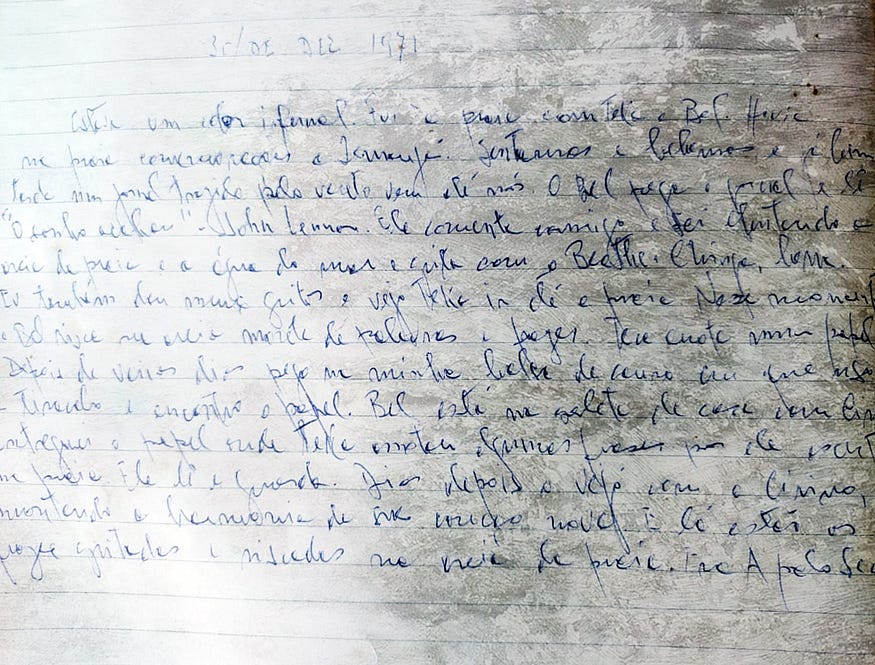 30/DE DEZ 1971
Estava um calor infernal. Fui à praia com Teca e Bel. Havia
na praia comemorações a Iemanjá. Sentamos e bebemos e à
tarde um jornal trazido pelo vento vem até nós. O Bel pega o jornal e lê
"O sonho acabou" - John Lennon. Ele comenta comigo e sai chutando a
areia da praia e a água do mar e grita com o Beatle: Chinga, berra.
Eu também dou meus gritos e vejo Teca ir até a praia Nesse moment
o Bel risca na areia de palavras e frases. Teca anota num papel
Depois de vários dias pego na minha bolsa de couro em que uso
e encontro o papel. Bel está na saleta de casa com
entreguei o papel onde Teca anotou algumas frases de
na praia. Ele lê e guarda. Dias depois o vejo com o
montando a harmonia de sua canção nova E lá estão as
frases gritadas e riscadas na areia da praia. Era A palo Sec